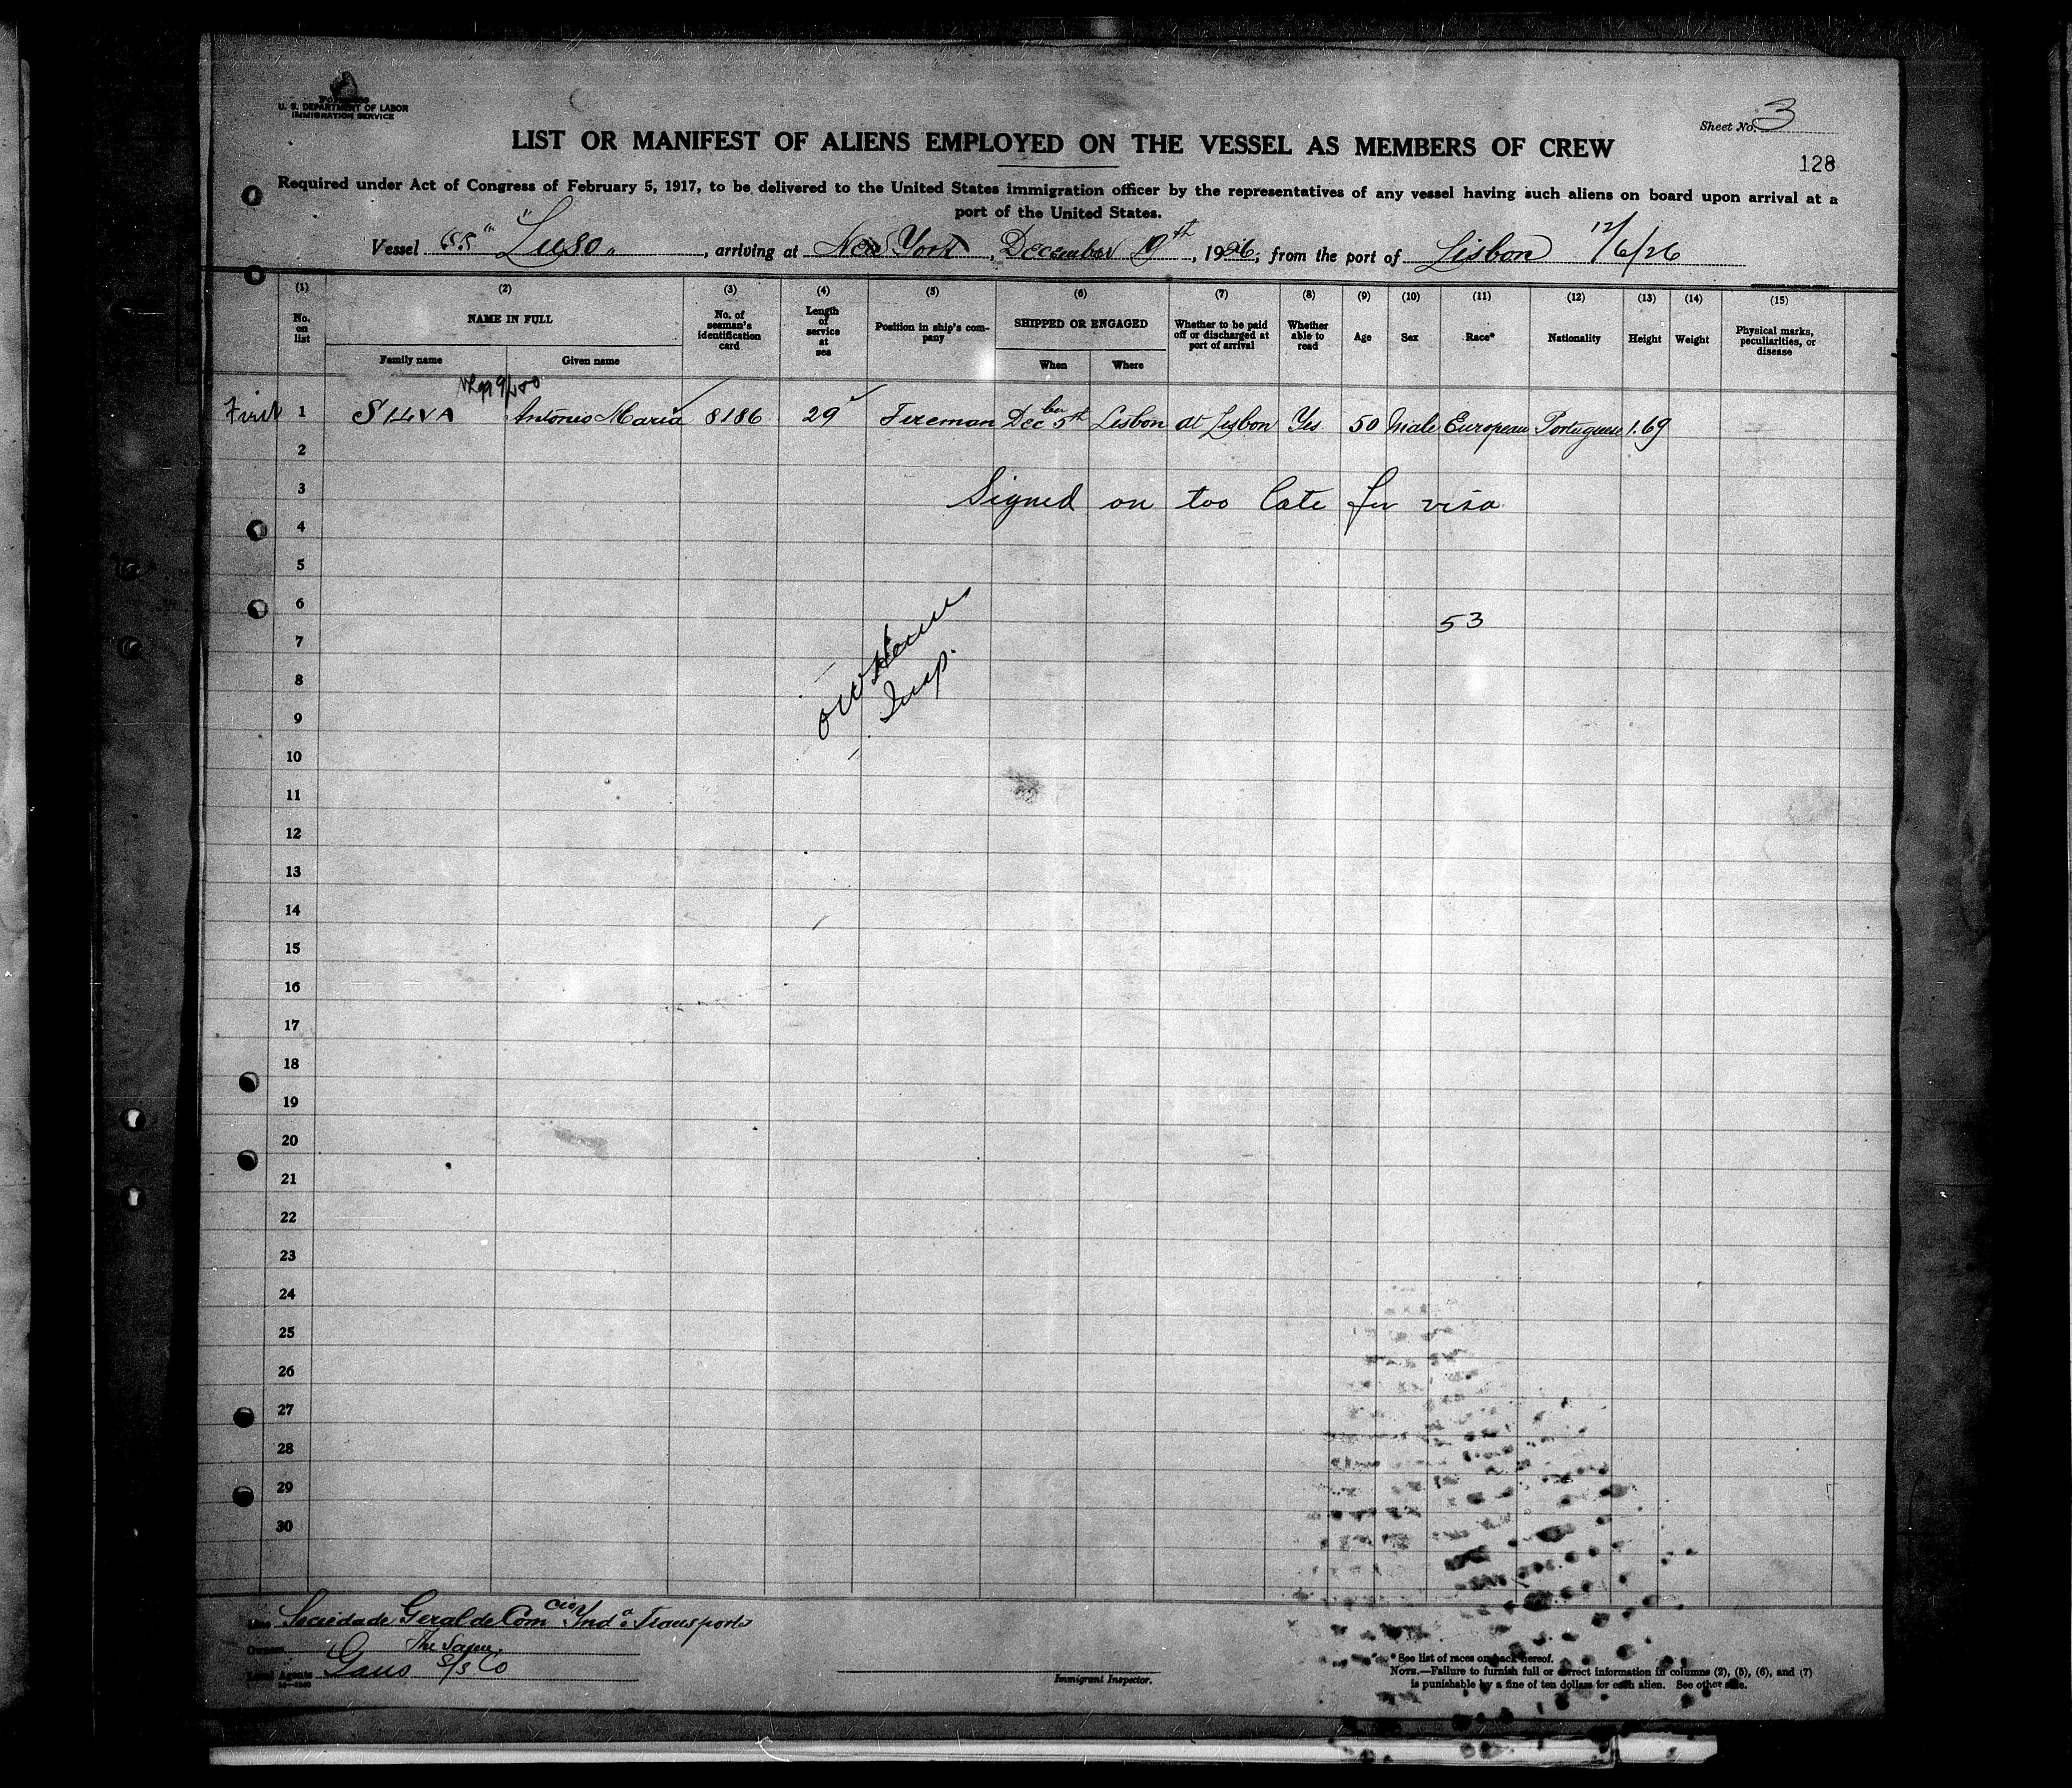 U. S. DEPARTMENT OF LABOR
IMMIGRATION SERVICE
Sheet No. 3
LIST OR MANIFEST OF ALIENS EMPLOYED ON THE VESSEL AS MEMBERS OF CREW
128
Required under Act of Congress of February 5, 1917, to be delivered to the United States immigration officer by the representatives of any vessel having such aliens on board upon arrival at a
port of the United States.
Vessel SS "Luso", arriving at New York, December 19th, 1926, from the port of Lisbon 12/6/26
(1) (2) (3) (4) (5) (6) (7) (8) (9) (10) (11) (12) (13) (14) (15)
No. on list NAME IN FULL No. of seaman's identification card Length of service at sea Position in ship's company SHIPPED OR ENGAGED Whether to be paid off or discharged at port of arrival Whether able to read Age Sex Race* Nationality Height Weight Physical marks, peculiarities, or disease
Family name Given name When Where
First 1 SILVA Antonio Maria 8186 29 Fireman Decber 5th Lisbon at Lisbon Yes 50 Male European Portuguese 1.69
2
3 Signed on too late for visa
4
5
6 53
7
8
Insp.
9
10
11
12
13
14
15
16
17
18
19
20
21
22
23
24
25
26
27
28
29
30
Line Sociedade Geral de Comcio Inda Transportes
Owners The Same.
Local Agents Gans S/S Co
Immigrant Inspector.
* See list of races on back hereof.
NOTE.—Failure to furnish full or correct information in columns (2), (5), (6), and (7)
is punishable by a fine of ten dollars for each alien. See other side.